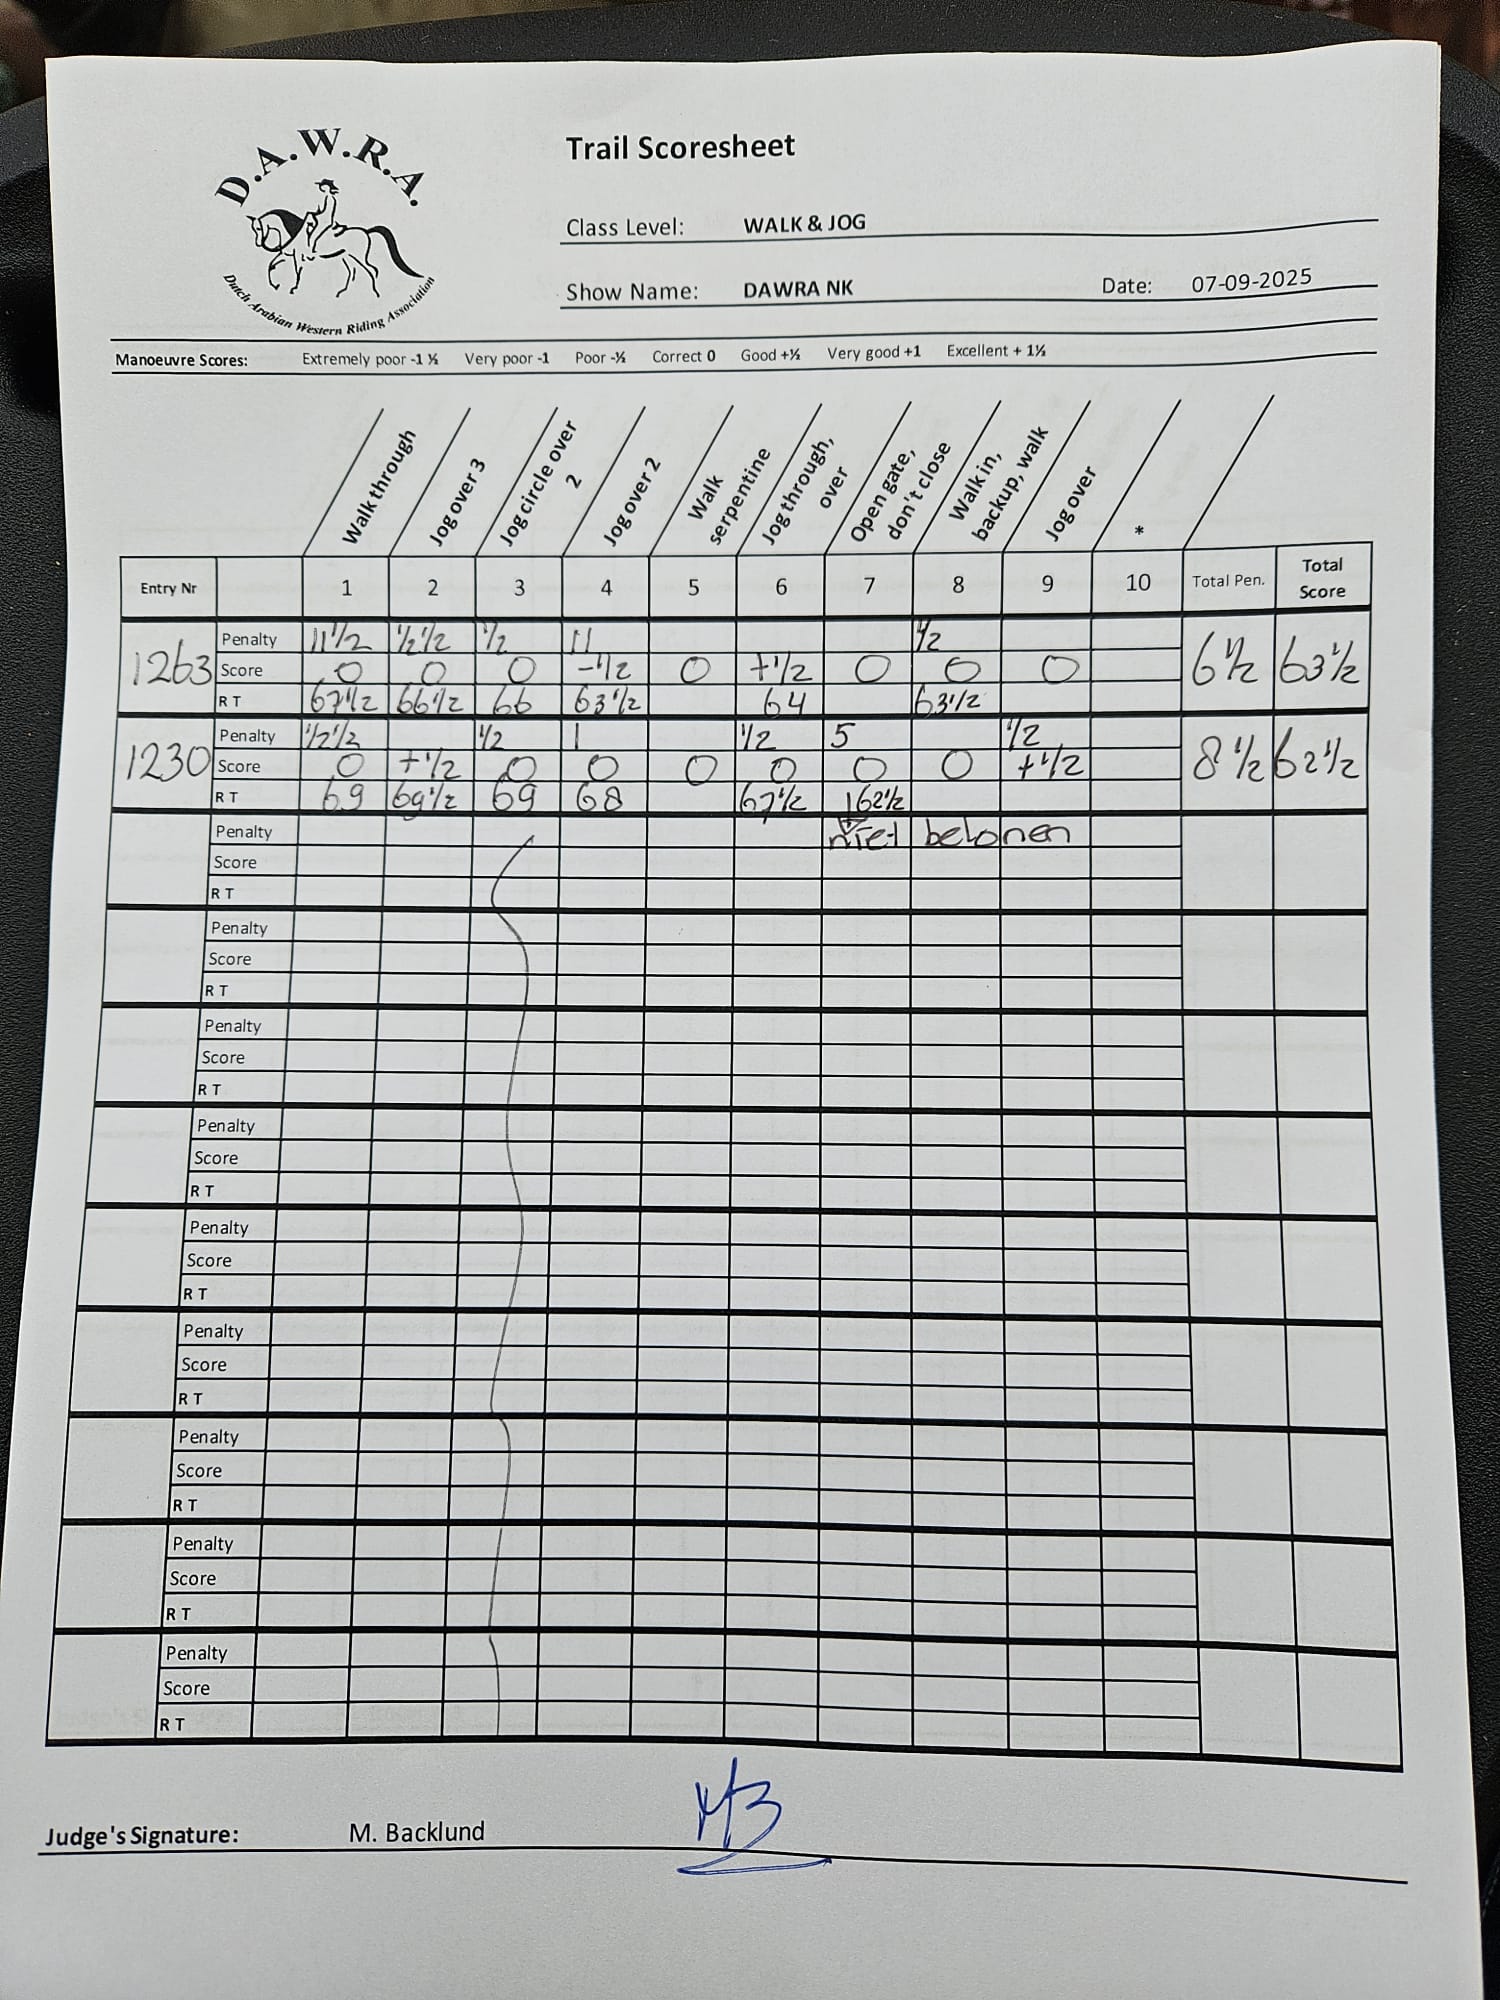 D.A.W.R.A.
Dutch Arabian Western Riding Association
Trail Scoresheet
Class Level: WALK & JOG
Show Name: DAWRA NK Date: 07-09-2025
Manoeuvre Scores: Extremely poor -1 ½ Very poor -1 Poor -½ Correct 0 Good +½ Very good +1 Excellent + 1½
Walk through
Jog over 3
Jog circle over
2
Jog over 2
Walk
serpentine
Jog through,
over
Open gate,
don't close
Walk in,
backup, walk
Jog over
*
Entry Nr 1 2 3 4 5 6 7 8 9 10 Total Pen. Total Score
1263 6½ 63½
Penalty 1 1 ½ ½ ½ ½ 1 1 ½
Score 0 0 0 -½ 0 +½ 0 0 0
R T 67½ 66½ 66 63½ 64 63½
1230 8½ 62½
Penalty ½ ½ ½ 1 ½ 5 ½
Score 0 +½ 0 0 0 0 0 0 +½
R T 69 69½ 69 68 67½ 62½
Penalty niet belonen
Score
R T
Penalty
Score
R T
Penalty
Score
R T
Penalty
Score
R T
Penalty
Score
R T
Penalty
Score
R T
Penalty
Score
R T
Penalty
Score
R T
Penalty
Score
R T
Judge's Signature: M. Backlund MB